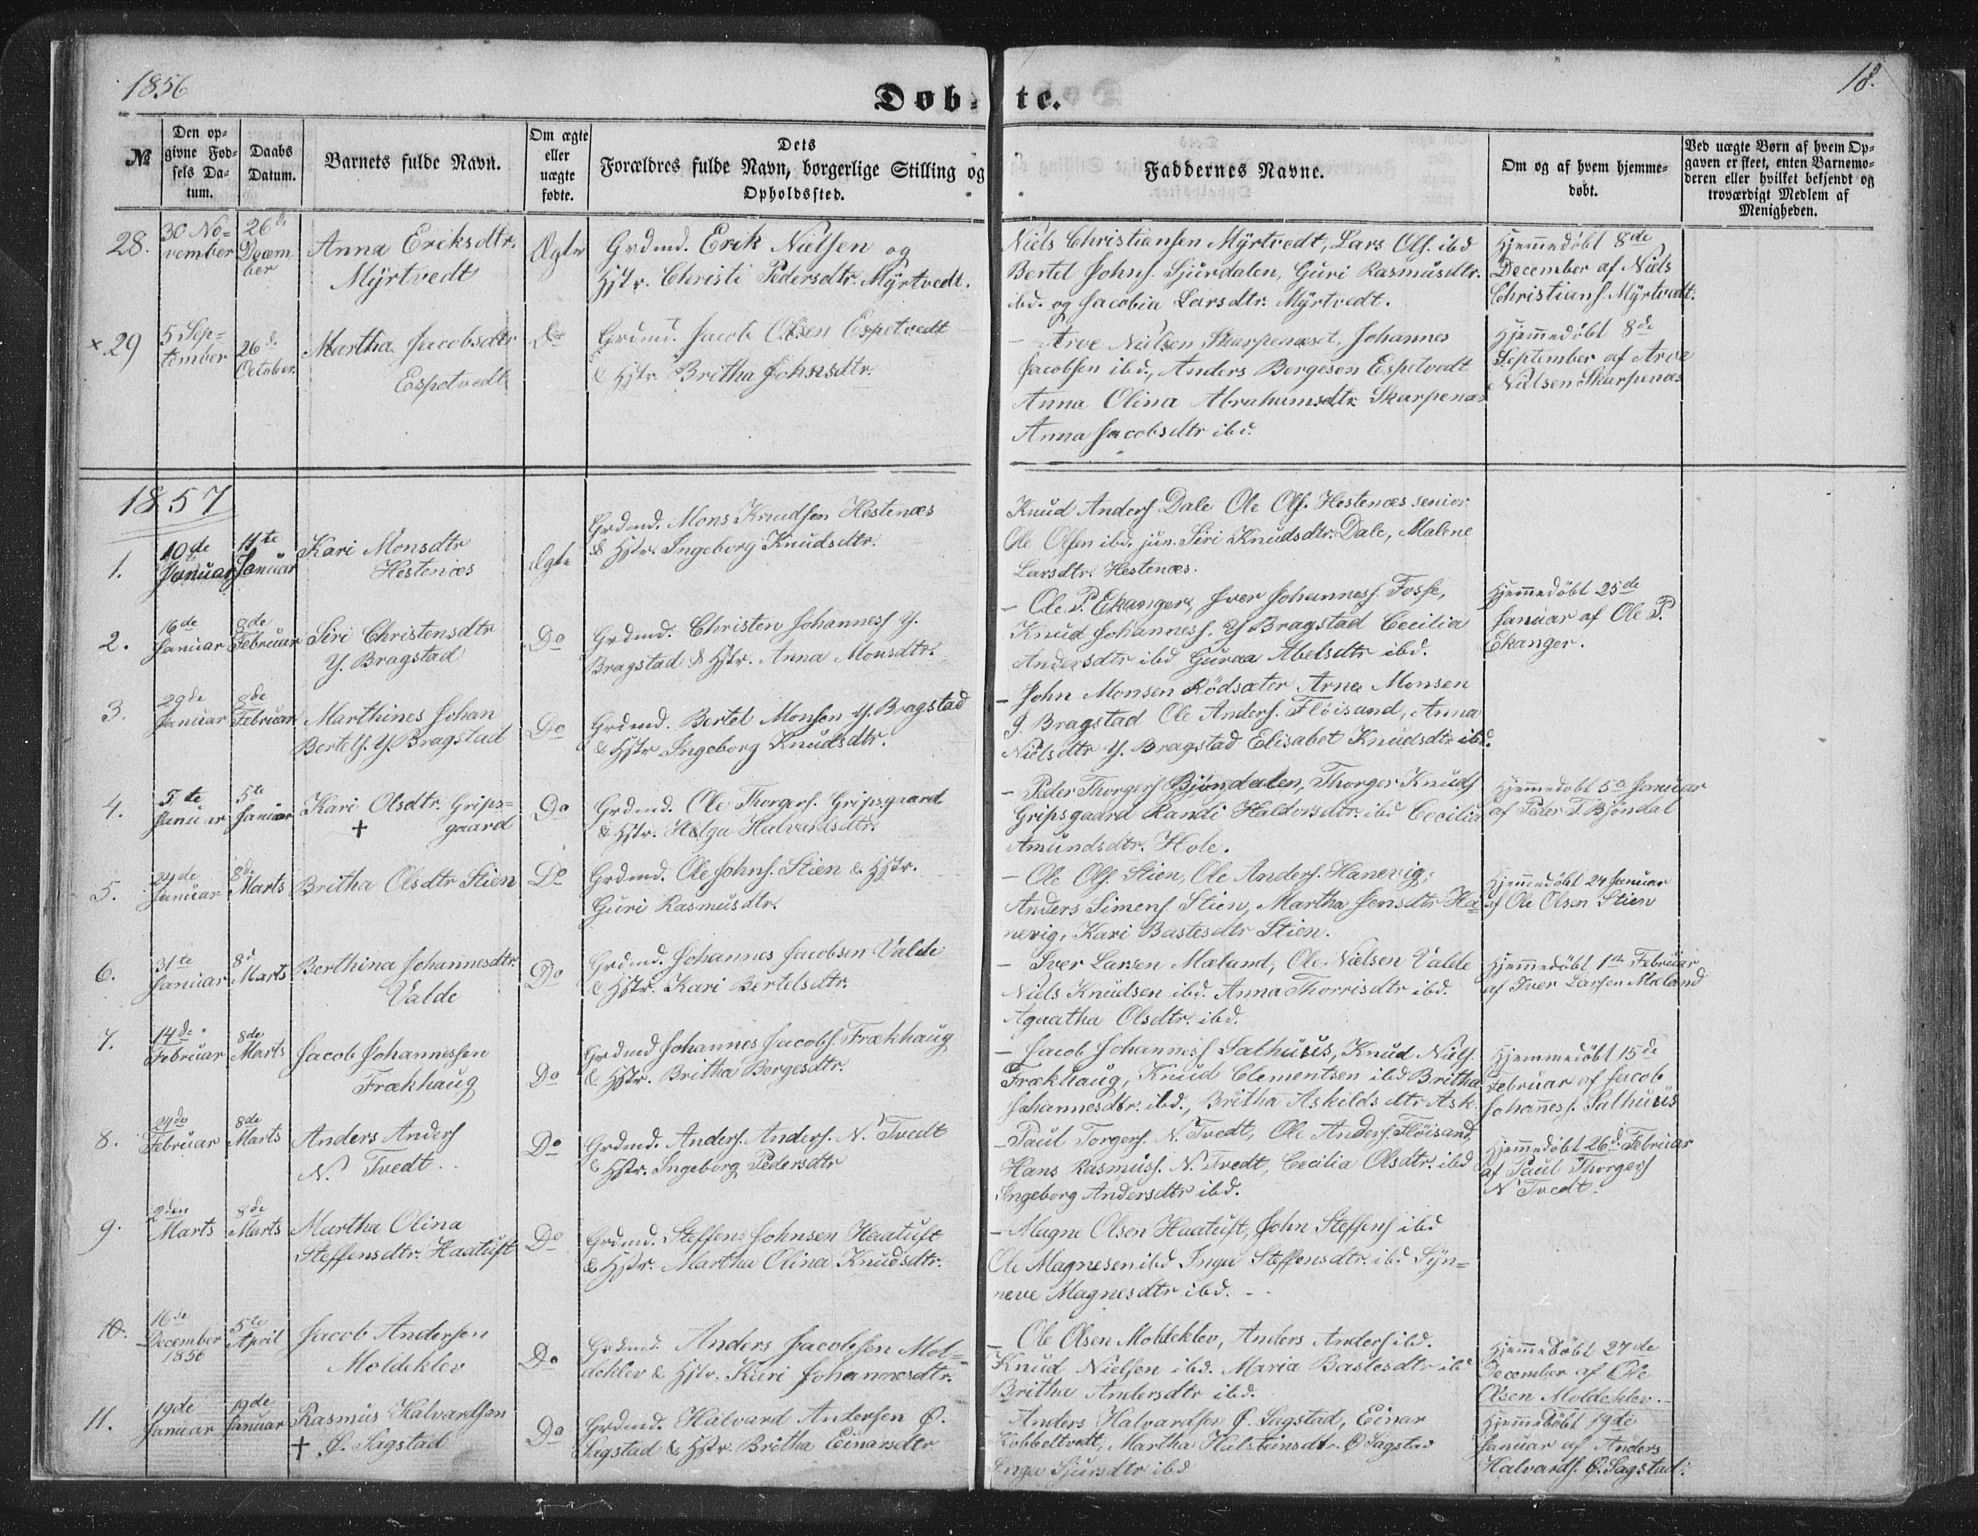 1856
18.
Døbte.
№
Den op-
givne Fød-
sels Da-
tum.
Daabs
Datum.
Barnets fulde Navn.
Om ægte
eller
uægte
fødte.
Dets
Forældres fulde Navn, borgerlige Stilling og
Opholdssted.
Faddernes Navne.
Om og af hvem hjemme-
døbt.
Ved uægte Børn af hvem Op-
gaven er skeet, enten Barnemo-
deren eller hvilket bekjendt og
troværdigt Medlem af
Menigheden.
28.
30 No-
vember
26de
Decem-
ber
Anna Eriksdtr.
Myrtvedt
Ægte
Grdmd. Erik Nielsen og
Hstr. Christi Pedersdtr. Myrtvedt.
Niels Christiansen Myrtvedt, Lars Ols. ibd
Bertel Johns. Sjurdalen, Guri Rasmusdtr.
ibd. og Jacobia Larsdtr. Myrtvedt.
Hjemmedøbt 8de
December af Niels
Christians. Myrtvedt.
× 29
5 Sep-
tember
26de
October.
Martha Jacobsdtr
Espetvedt
Do
Grdmd. Jacob Olsen Espetvedt
& Hstr. Britha Johnsdtr.
– Arve Nielsen Skarpenæset, Johannes
Jacobsen ibd., Anders Borgeson Espetvedt
Anna Olina Abrahamsdtr. Skarpenæs
Anna Jacobsdtr ibd.
Hjemmedøbt 8de
September af Arve
Nielsen Skarpenæs
1857
1.
10de
Januar
11te
Januar
Kari Monsdtr
Hestenæs
Ægte
Grdmd. Mons Knudsen Hestenæs
& Hstr. Ingeborg Knudsdtr.
Knud Anders. Dale Ole Ols. Hestenæs senior
Ole Olsen ibd. jun. Siri Knudsdtr. Dale, Malene
Larsdtr. Hestenæs.
2.
16de
Januar
8de
Februar
Siri Christensdtr
Y. Bragstad
Do
Grdmd. Christen Johanness Y.
Bragstad & Hstr. Anna Monsdtr.
– Ole P. Ekanger, Iver Johanness. Fosse,
Knud Johanness. Y Bragstad Cecilia
Andersdtr ibd Guroa Abelsdtr ibd.
Hjemmedøbt 25de
Januar af Ole P.
Ekanger.
3.
29de
Januar
8de
Februar
Marthines Johan
Bertels. Y Bragstad
Do
Grdmd. Bertel Monsen Y. Bragstad
& Hstr Ingeborg Knudsdtr.
– John Monsen Rødsæter Arne Monsen
Y Bragstad Ole Anders. Fløisand, Anna
Nielsdtr Y. Bragstad Elisabet Knudsdtr ibd.
4.
5te
Januar
5te
Januar
Kari Olsdtr. Grips-
gaard
†
Do
Grdmd. Ole Thorgers. Gripsgaard
& Hstr. Helga Halvardsdtr.
– Peder Thorgers Bjøndalen, Thorger Knuds
Gripsgaard Randi Haldersdtr. ibd Cecilia
Amundsdtr. Hole.
Hjemmedøbt 5te Januar
af Peder T. Bjöndal
5.
Januar
8de
Marts
Britha Olsdtr Stien
Do
Grdmd. Ole Johns. Stien & Hstr.
Guri Rasmusdtr.
– Ole Ols. Stien, Ole Anders. Hanevig,
Anders Simens Stien, Martha Jensdtr Ha-
nevig, Kari Bastesdtr Stien.
Hjemmedøbt 24 Januar
af Ole Olsen Stien
6.
31te
Januar
8d
Marts
Berthina Johannesdtr.
Valde
Do
Grdmd. Johannes Jacobsen Valde
& Hstr. Kari Bertelsdtr.
– Iver Larsen Mæland, Ole Nielsen Valde
Niels Knudsen ibd. Anna Thorrisdtr ibd.
Agaatha Olsdtr. ibd.
Hjemmedøbt 1ste Februar
af Iver Larsen Mæland
7.
14de
Februar
8de
Marts
Jacob Johannessen
Frækhaug
Do
Grdmd Johannes Jacobs. Frækhaug
& Hstr. Britha Borgesdtr.
– Jacob Johanness Salhuus, Knud Niels.
Frækhaug, Knud Clementsen ibd Britha
Johannesdtr. ibd., Britha Askildsdtr Ask
Hjemmedøbt 15de
Februar af Jacob
Johanness. Salhuus
8.
24de
Februar
8de
Marts
Anders Anders
N. Tvedt
Do
Grdmd. Anders. Anders. N. Tvedt
& Hstr. Ingeborg Pedersdtr
– Paul Torgers. N. Tvedt, Ole Anders. Fløisand,
Hans Rasmuss. N. Tvedt, Cecilia Olsdtr. ibd
Ingeborg Andersdtr ibd.
Hjemmedøbt 26d Februar
af Paul Thorgers
N Tvedt.
9.
2den
Marts
8de
Marts
Martha Olina
Steffensdtr. Haatuft
Do
Grdmd. Steffen Johnsen Haatuft
& Hstr. Martha Olina Knudsdtr.
– Magne Olsen Haatuft, John Steffens ibd
Ole Magnesen ibd Inga Steffensdtr. ibd Syn-
neve Magnesdtr ibd. –
10.
16de
December
1856
5te
April
Jacob Andersen
Moldeklev
Do
Grdmd. Anders Jacobsen Mol-
deklev & Hstr. Kari Johannesdtr.
– Ole Olsen Moldeklev, Anders Anders ibd.
Knud Nielsen ibd. Maria Bastesdtr ibd
Britha Andersdtr ibd.
Hjemmedøbt 27de
December af Ole
Olsen Moldeklev. –
11.
19de
Januar
19de
Januar
Rasmus Halvardsen
† Ø. Sagstad
Do
Grdmd. Halvard Andersen Ø.
Sagstad & Hstr. Britha Einarsdtr
Anders Halvardsen Ø. Sagstad, Einar
Kobbeltvedt, Martha Halsteinsdtr. Ø Sagstad
Inga Sjursdtr ibd
Hjemmedøbt 19de
Januar af Anders
Halvards. Ø. Sagstad.